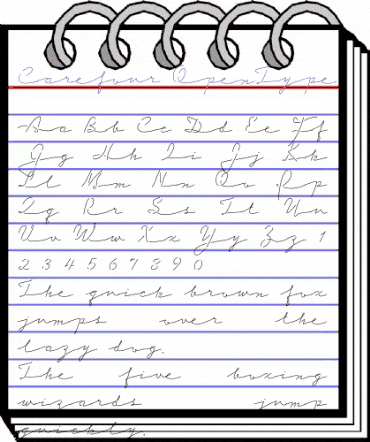 Carefour OpenType
Aa Bb Cc Dd Ee Ff
Gg Hh Ii Jj Kk
Ll Mm Nn Oo Pp
Qq Rr Ss Tt Uu
Vv Ww Xx Yy Zz 1
2 3 4 5 6 7 8 9 0
The quick brown fox
jumps over the
lazy dog.
The five boxing
wizards jump
quickly.